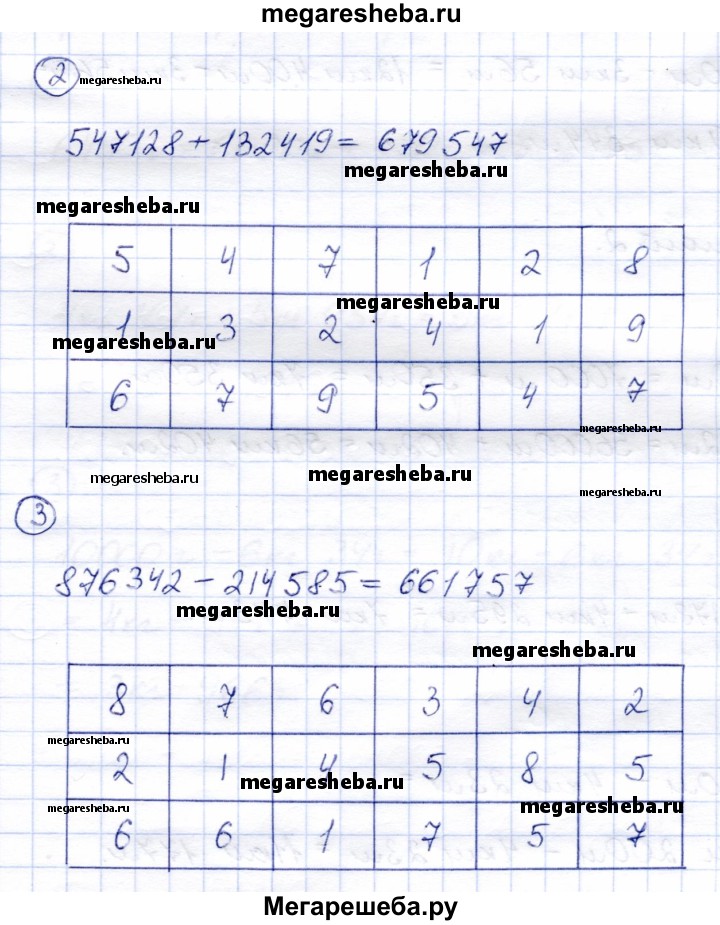 megaresheba.ru
2 megaresheba.ru
547128 + 132419 = 679547
megaresheba.ru
megaresheba.ru
5 4 7 1 2 8
megaresheba.ru
1 3 2 4 1 9
megaresheba.ru
6 7 9 5 4 7
megaresheba.ru
megaresheba.ru megaresheba.ru megaresheba.ru
3
876342 - 214585 = 661757
megaresheba.ru
megaresheba.ru
8 7 6 3 4 2
megaresheba.ru
2 1 4 5 8 5
megaresheba.ru
megaresheba.ru megaresheba.ru
6 6 1 7 5 7
Мегарешеба.ру